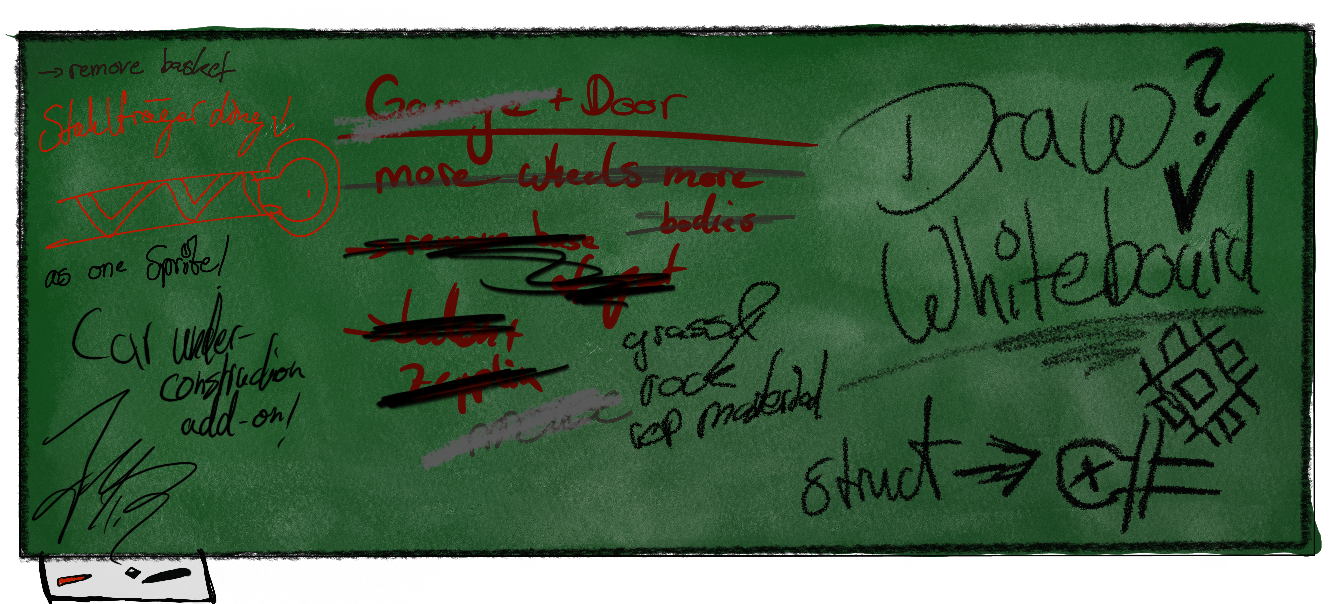 → remove basket
Stahlträger ding!
as one Sprite!
Car under-
construction
add-on!
Garage + Door
more wheels more
bodies
remove base
Zepplin
grass
rock
rep material
Draw?
Whiteboard
struct →